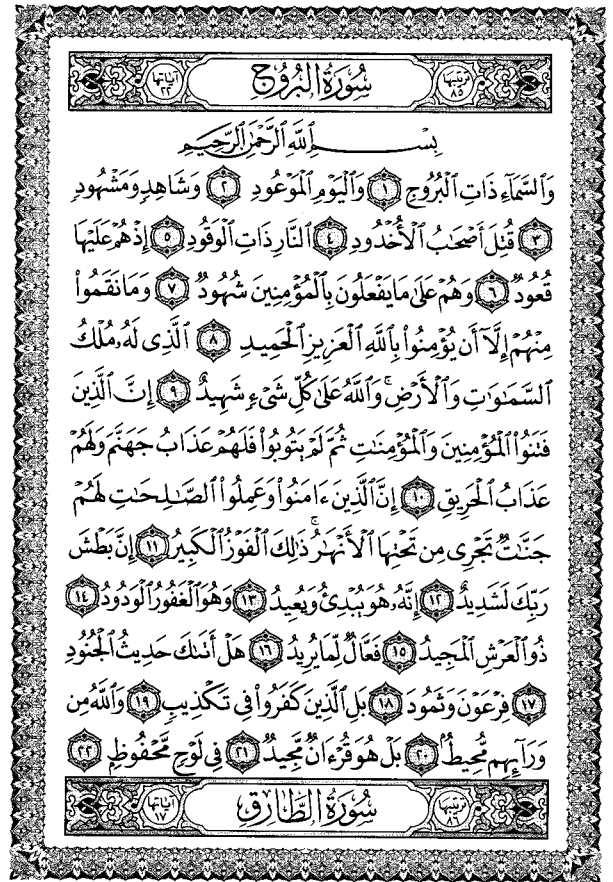 ترتيبها ٨٥ سُورَةُ الْبُرُوجِ آياتها ٢٢
بِسْمِ اللَّهِ الرَّحْمَٰنِ الرَّحِيمِ
وَالسَّمَاءِ ذَاتِ الْبُرُوجِ ١ وَالْيَوْمِ الْمَوْعُودِ ٢ وَشَاهِدٍ وَمَشْهُودٍ
٣ قُتِلَ أَصْحَٰبُ الْأُخْدُودِ ٤ النَّارِ ذَاتِ الْوَقُودِ ٥ إِذْ هُمْ عَلَيْهَا
قُعُودٌ ٦ وَهُمْ عَلَىٰ مَا يَفْعَلُونَ بِالْمُؤْمِنِينَ شُهُودٌ ٧ وَمَا نَقَمُوا
مِنْهُمْ إِلَّا أَن يُؤْمِنُوا بِاللَّهِ الْعَزِيزِ الْحَمِيدِ ٨ الَّذِي لَهُ مُلْكُ
السَّمَٰوَٰتِ وَالْأَرْضِ ۚ وَاللَّهُ عَلَىٰ كُلِّ شَيْءٍ شَهِيدٌ ٩ إِنَّ الَّذِينَ
فَتَنُوا الْمُؤْمِنِينَ وَالْمُؤْمِنَٰتِ ثُمَّ لَمْ يَتُوبُوا فَلَهُمْ عَذَابُ جَهَنَّمَ وَلَهُمْ
عَذَابُ الْحَرِيقِ ١٠ إِنَّ الَّذِينَ ءَامَنُوا وَعَمِلُوا الصَّٰلِحَٰتِ لَهُمْ
جَنَّٰتٌ تَجْرِي مِن تَحْتِهَا الْأَنْهَٰرُ ۚ ذَٰلِكَ الْفَوْزُ الْكَبِيرُ ١١ إِنَّ بَطْشَ
رَبِّكَ لَشَدِيدٌ ١٢ إِنَّهُ هُوَ يُبْدِئُ وَيُعِيدُ ١٣ وَهُوَ الْغَفُورُ الْوَدُودُ ١٤
ذُو الْعَرْشِ الْمَجِيدُ ١٥ فَعَّالٌ لِّمَا يُرِيدُ ١٦ هَلْ أَتَىٰكَ حَدِيثُ الْجُنُودِ
١٧ فِرْعَوْنَ وَثَمُودَ ١٨ بَلِ الَّذِينَ كَفَرُوا فِي تَكْذِيبٍ ١٩ وَاللَّهُ مِن
وَرَائِهِم مُّحِيطٌ ٢٠ بَلْ هُوَ قُرْءَانٌ مَّجِيدٌ ٢١ فِي لَوْحٍ مَّحْفُوظٍ ٢٢
ترتيبها ٨٦ سُورَةُ الطَّارِقِ آياتها ١٧